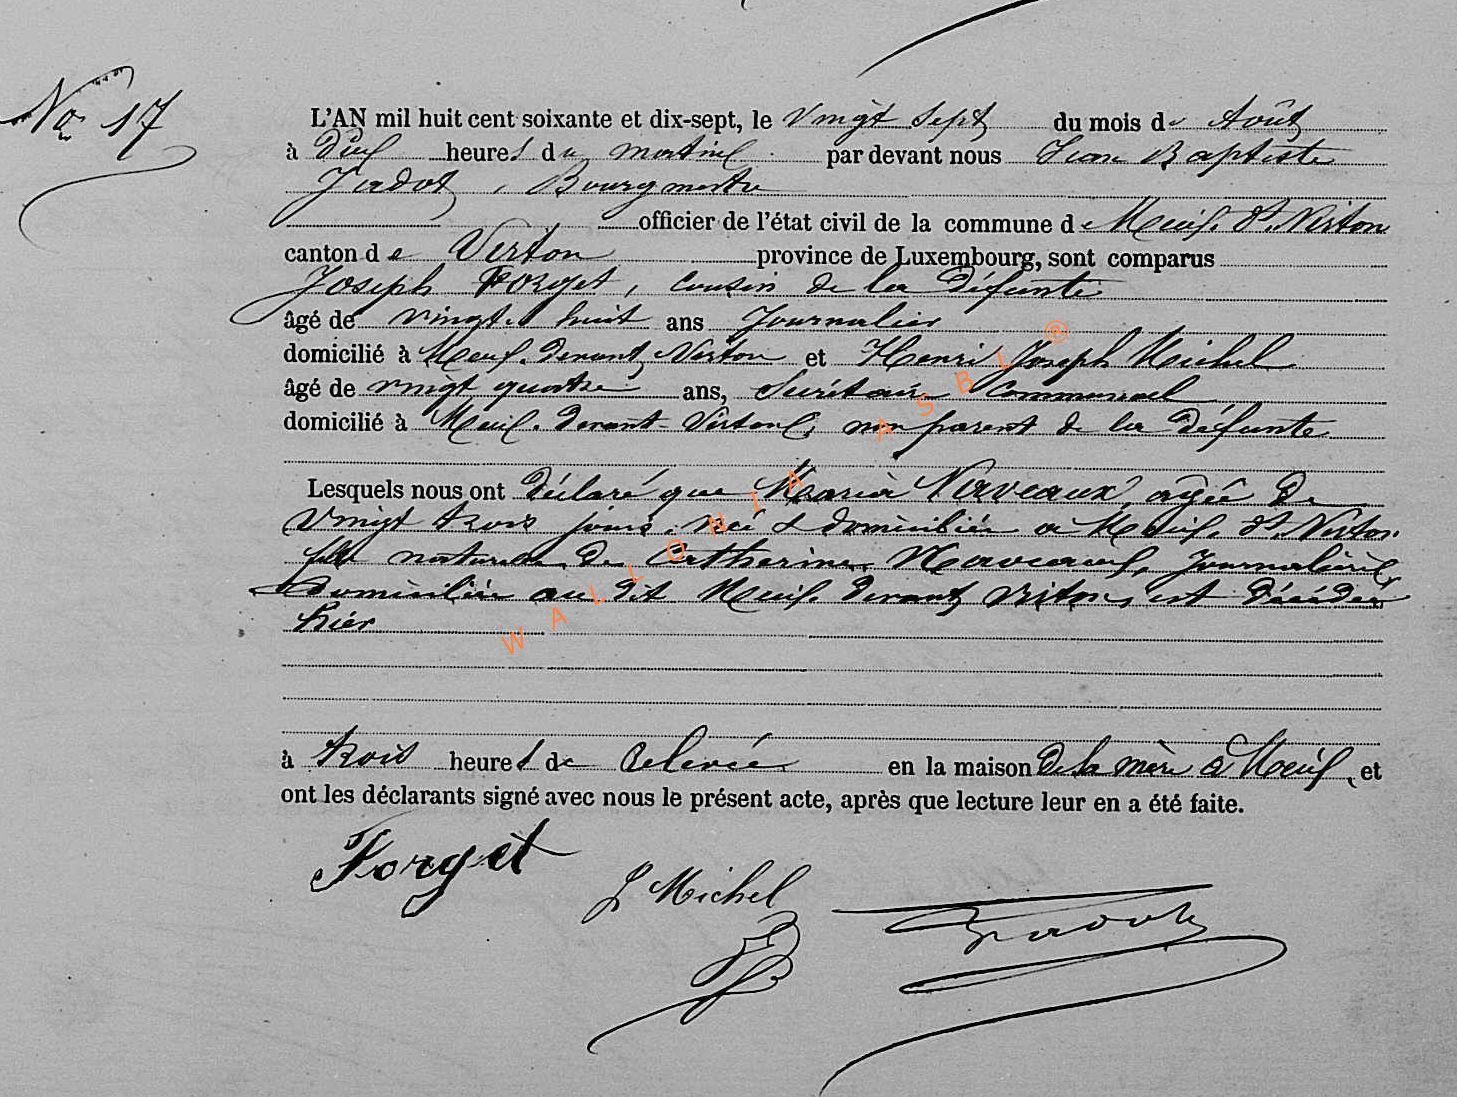 No 17
L'AN mil huit cent soixante et dix-sept, le vingt sept du mois de Août
à dix heures du matin par devant nous Jean Baptiste
Jadot, Bourgmestre
officier de l'état civil de la commune de Meix dt Virton
canton de Virton province de Luxembourg, sont comparus
Joseph Forget, cousin de la défunte
âgé de vingt huit ans Journalier
domicilié à Meix devant Virton et Henri Joseph Michel
âgé de vingt quatre ans, Secrétaire Communal
domicilié à Meix devant Virton, non parent de la défunte
Lesquels nous ont déclaré que Maria Nerveaux, agée de
vingt trois jours, née & domiciliée à Meix dt Virton
fille naturelle de Catherine Journalière
domiciliée au dit Meix devant Virton, est décédée
hier
à trois heures de relevée en la maison de la mère à Meix, et
ont les déclarants signé avec nous le présent acte, après que lecture leur en a été faite.
Forget
J Michel
Jadot
WALLONIA ASBL ®